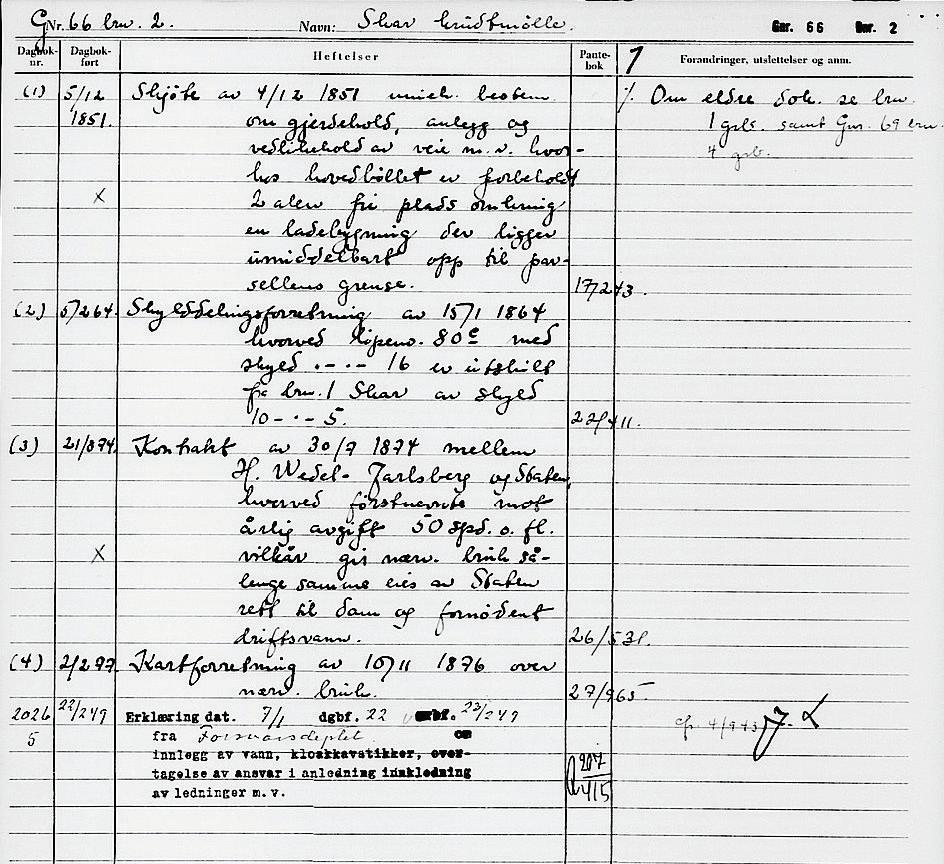 Gnr. 66 brn. 2. Navn: Skar krudtmølle. Gnr. 66 Bnr. 2
Dagbok-nr. Dagbok-ført Heftelser Pante-bok 1 Forandringer, utslettelser og anm.
(1) 5/12 Skjøte av 4/12 1851 med bestem. % Om eldre dok. se brn.
1851. om gjerdehold, anlegg og 1 grb. samt Gnr. 69 brn.
vedlikehold av veie m.v. hvor- 4 grb.
hos hovedbøllet er forbeholdt
X 2 alen fri plads omkring
en ladebygning der ligger
umiddelbart opp til par-
sellens grense. 17/243.
(2) 5/264. Skylddelingsforretning av 15/1 1864
hvorved løpeno. 80c med
skyld .-.- 16 er utskilt
fra brn. 1 Skar av skyld
10-.-5. 22/411.
(3) 21/874. Kontrakt av 30/7 1874 mellem
H. Wedel-Jarlsberg og Staten,
hvorved førstnevnte mot
årlig avgift 50 spd. o. fl.
X vilkår gir nærv. bruk så-
lenge samme eies av Staten
rett til dam og fornødent
driftsvann. 26/531.
(4) 2/277. Kartforretning av 10/11 1876 over
nærv. bruk. 27/965.
2026 22/249 Erklæring dat. 7/1 dgbf. 22 23/249
5 fra Forsvarsdeptet om
innlegg av vann, kloakkavstikker, over-
tagelse av ansvar i anledning innkledning
av ledninger m.v. 207
415
cfr. 4/943